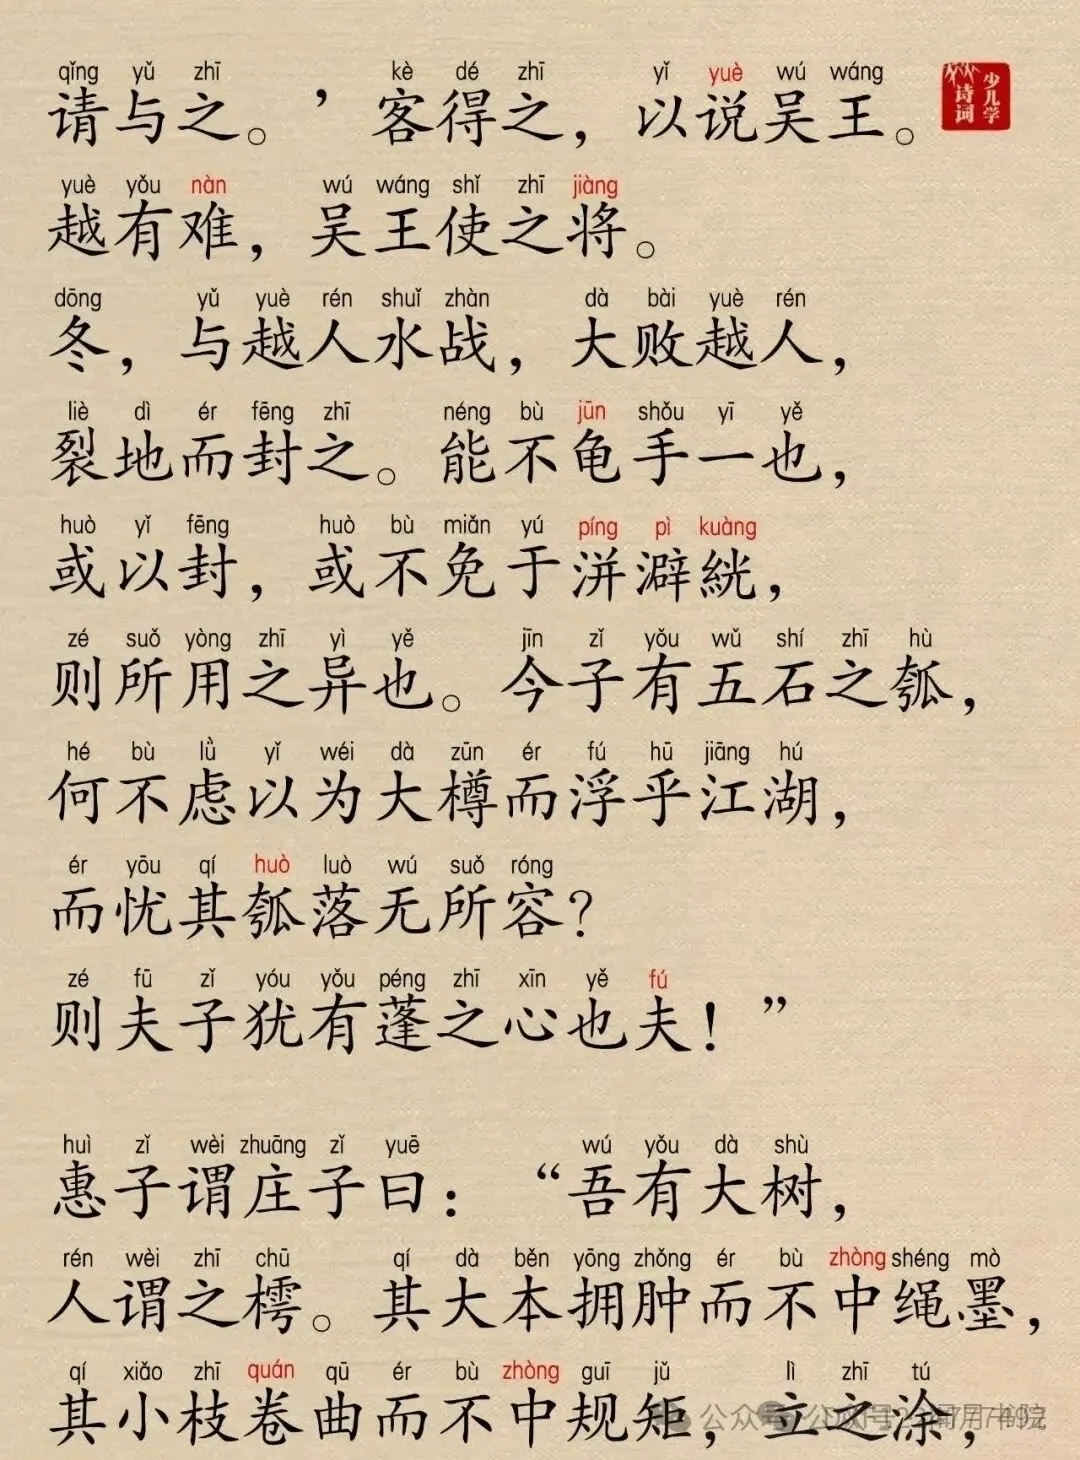 qǐng yǔ zhī kè dé zhī yǐ yuè wú wáng
请与之。’客得之，以说吴王。
少儿学
诗词
yuè yǒu nàn wú wáng shǐ zhī jiàng
越有难，吴王使之将。
dōng yǔ yuè rén shuǐ zhàn dà bài yuè rén
冬，与越人水战，大败越人，
liè dì ér fēng zhī néng bù jūn shǒu yī yě
裂地而封之。能不龟手一也，
huò yǐ fēng huò bù miǎn yú píng pì kuàng
或以封，或不免于洴澼絖，
zé suǒ yòng zhī yì yě jīn zǐ yǒu wǔ shí zhī hù
则所用之异也。今子有五石之瓠，
hé bù lǜ yǐ wéi dà zūn ér fú hū jiāng hú
何不虑以为大樽而浮乎江湖，
ér yōu qí huò luò wú suǒ róng
而忧其瓠落无所容？
zé fū zǐ yóu yǒu péng zhī xīn yě fú
则夫子犹有蓬之心也夫！”
huì zǐ wèi zhuāng zǐ yuē wú yǒu dà shù
惠子谓庄子曰：“吾有大树，
rén wèi zhī chū qí dà běn yōng zhǒng ér bù zhòng shéng mò
人谓之樗。其大本拥肿而不中绳墨，
qí xiǎo zhī quán qū ér bù zhòng guī jǔ lì zhī tú
其小枝卷曲而不中规矩，立之涂，